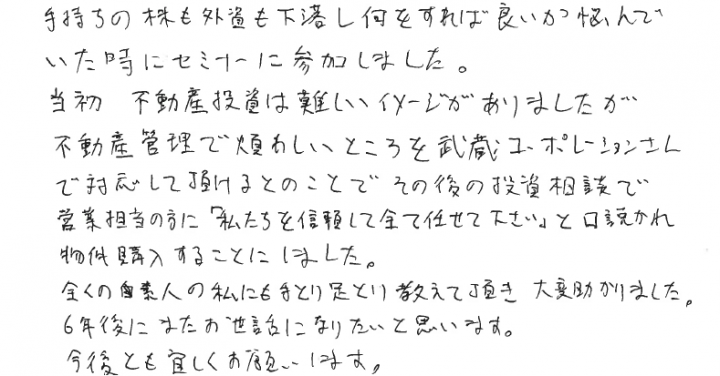 手持ちの株も外貨も下落し何をすれば良いか悩んで
いた時にセミナーに参加しました。
当初 不動産投資は難しいイメージがありましたが
不動産管理で煩わしいところを武蔵コーポレーションさん
で対応して頂けるとのことでその後の投資相談で
営業担当の方に「私たちを信頼して全て任せて下さい」と口説かれ
物件購入することにしました。
全くの素人の私にも手とり足とり教えて頂き 大変助かりました。
6年後にまたお世話になりたいと思います。
今後とも宜しくお願いします。